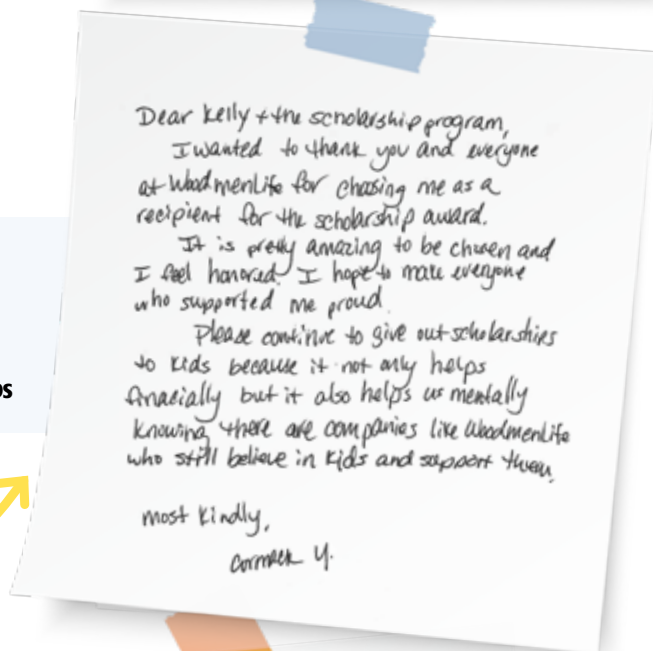 Dear Kelly + the scholarship program,
I wanted to thank you and everyone
at WoodmenLife for chosing me as a
recipient for the scholarship award.
It is pretty amazing to be chosen and
I feel honored. I hope to make everyone
who supported me proud.
Please continue to give out scholarships
to kids because it not only helps
finacially but it also helps us mentally
knowing there are companies like WoodmenLife
who still believe in kids and support them.
most kindly,
Cormack Y.